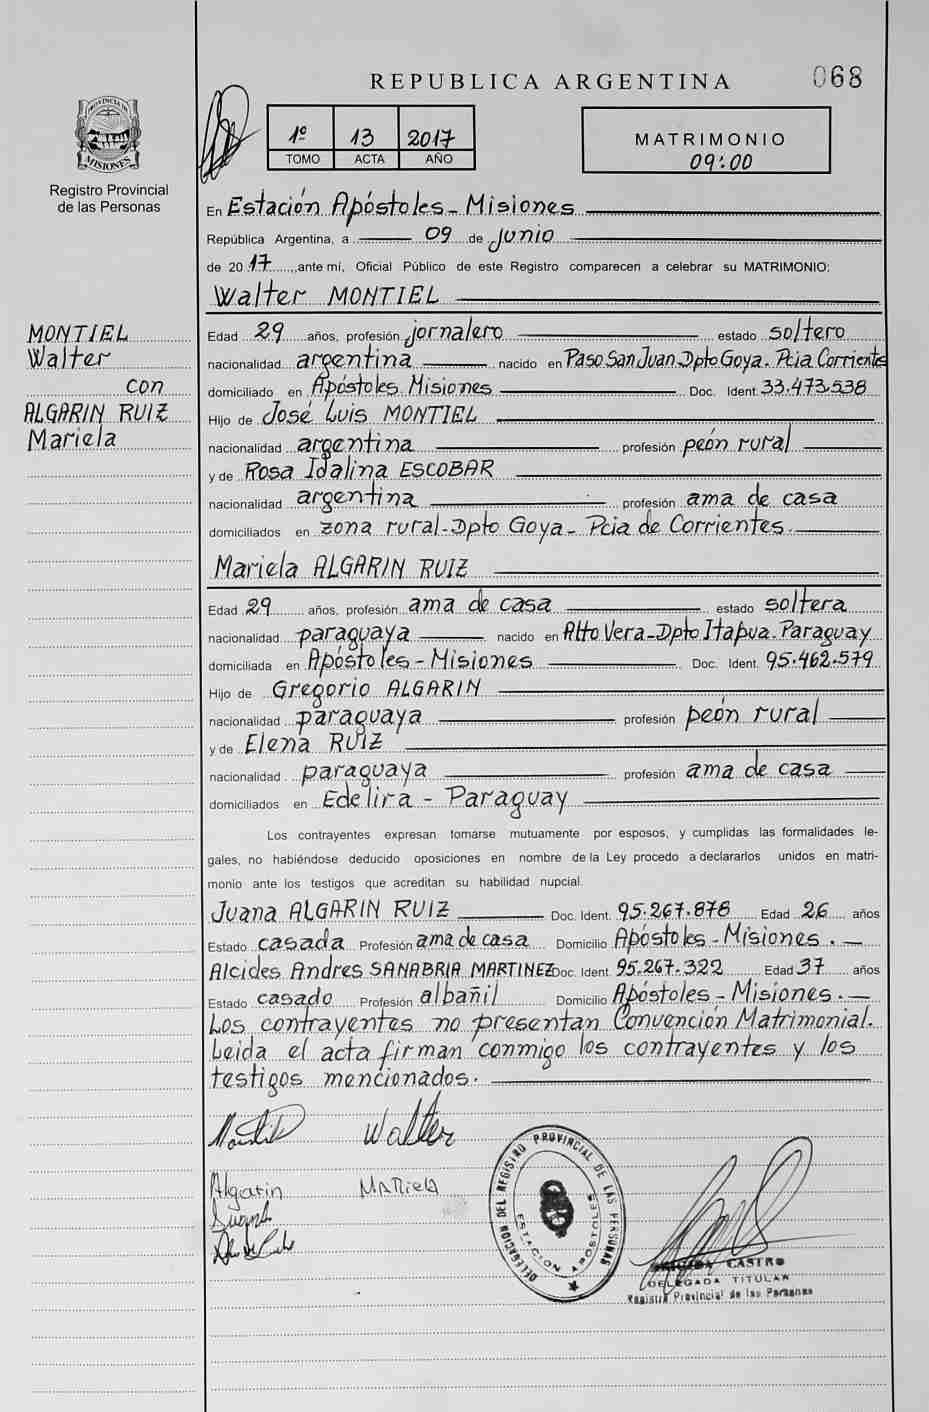 REPUBLICA ARGENTINA
068
1º 13 2017
TOMO ACTA AÑO
MATRIMONIO
09:00
PROVINCIA DE
MISIONES
Registro Provincial
de las Personas
En Estación Apóstoles - Misiones
República Argentina, a 09 de junio
de 2017, ante mí, Oficial Público de este Registro comparecen a celebrar su MATRIMONIO:
Walter MONTIEL
MONTIEL
Walter
con
ALGARIN RUIZ
Mariela
Edad 29 años, profesión jornalero estado soltero
nacionalidad argentina nacido en Paso San Juan Dpto Goya. Pcia Corrientes
domiciliado en Apóstoles Misiones Doc. Ident. 33.473.538
Hijo de José Luis MONTIEL
nacionalidad argentina profesión peón rural
y de Rosa Idalina ESCOBAR
nacionalidad argentina profesión ama de casa
domiciliados en zona rural - Dpto Goya - Pcia de Corrientes.
Mariela ALGARIN RUIZ
Edad 29 años, profesión ama de casa estado soltera
nacionalidad paraguaya nacido en Alto Vera - Dpto Itapua. Paraguay
domiciliada en Apóstoles - Misiones Doc. Ident. 95.462.579
Hijo de Gregorio ALGARIN
nacionalidad paraguaya profesión peón rural
y de Elena RUIZ
nacionalidad paraguaya profesión ama de casa
domiciliados en Edelira - Paraguay
Los contrayentes expresan tomarse mutuamente por esposos, y cumplidas las formalidades le-
gales, no habiéndose deducido oposiciones en nombre de la Ley procedo a declararlos unidos en matri-
monio ante los testigos que acreditan su habilidad nupcial.
Juana ALGARIN RUIZ Doc. Ident. 95.267.878 Edad 26 años
Estado casada Profesión ama de casa Domicilio Apóstoles - Misiones.
Alcides Andres SANABRIA MARTINEZ Doc. Ident. 95.267.322 Edad 37 años
Estado casado Profesión albañil Domicilio Apóstoles - Misiones.
Los contrayentes no presentan Convención Matrimonial.
Leida el acta firman conmigo los contrayentes y los
testigos mencionados.
Walter
Algarin Mariela
DELEGACION DEL REGISTRO PROVINCIAL DE LAS PERSONAS
ESTACION APOSTOLES
CASTRO
DELEGADA TITULAR
Registro Provincial de las Personas